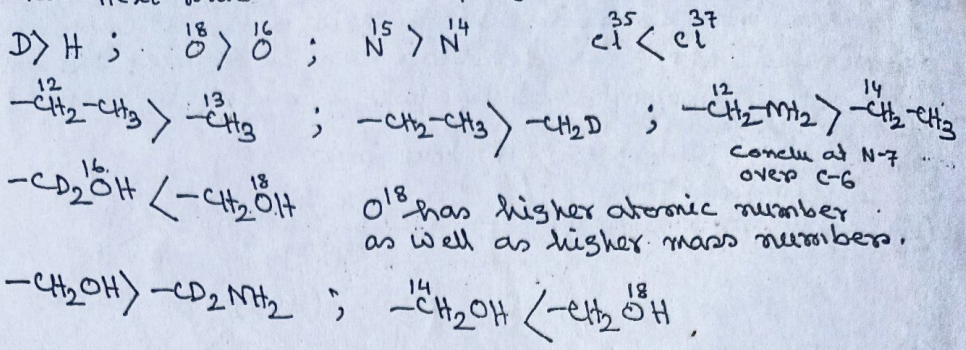 D > H ; ¹⁸O > ¹⁶O ; ¹⁵N > ¹⁴N ³⁵Cl < ³⁷Cl
-¹²CH₂-CH₃ > -¹³CH₃ ; -CH₂-CH₃ > -CH₂D ; -¹²CH₂-NH₂ > -¹⁴CH₂-CH₃
conclu at N-7 ....
over C-6
-CD₂¹⁶OH < -CH₂¹⁸OH O¹⁸ has higher atomic number
as well as higher mass numbers.
-CH₂OH > -CD₂NH₂ ; -¹⁴CH₂OH < -CH₂¹⁸OH.